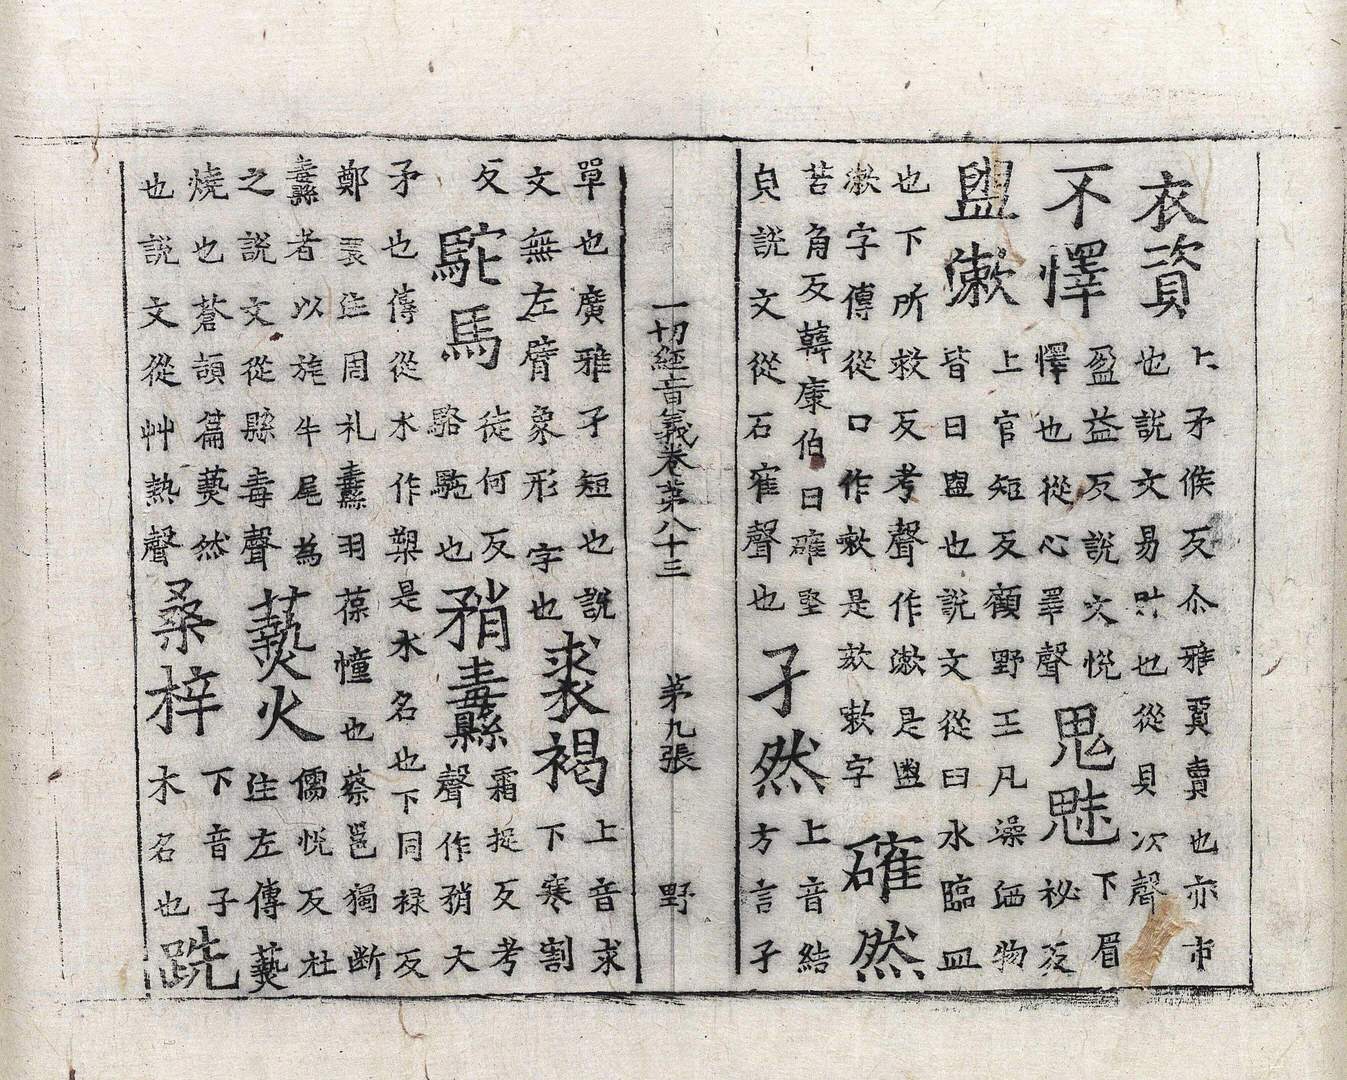 衣資
上矛候反尒雅貿賣也亦市
也說文易財也從貝次聲
不懌
盈益反說文悅
懌也從心睪聲
鬼魅
下眉
祕反
盥漱
上官短反顧野王凡澡洒物
皆曰盥也說文從臼水臨皿
也下所救反考聲作漱是盥
漱字傳從口作嗽是欬嗽字
確然
苦角反韓康伯曰確堅
皃說文從石隺聲也
孑然
上音結
方言孑
單也廣雅孑短也說
文無左臂象形字也
裘褐
上音求
下寒割
反
駝馬
徒何反
駱駞也
矟纛
霜捉反考
聲作矟大
矛也傳從木作槊是水名也下同祿反
鄭衆注周礼纛羽葆幢也蔡邕獨斷
纛者以旄牛尾為
之說文從縣毒聲
爇火
儒悅反杜
注左傳爇
燒也蒼頡篇爇然
也說文從艸熱聲
桑梓
下音子
木名也
跣
一切經音義卷第八十三 第九張 野